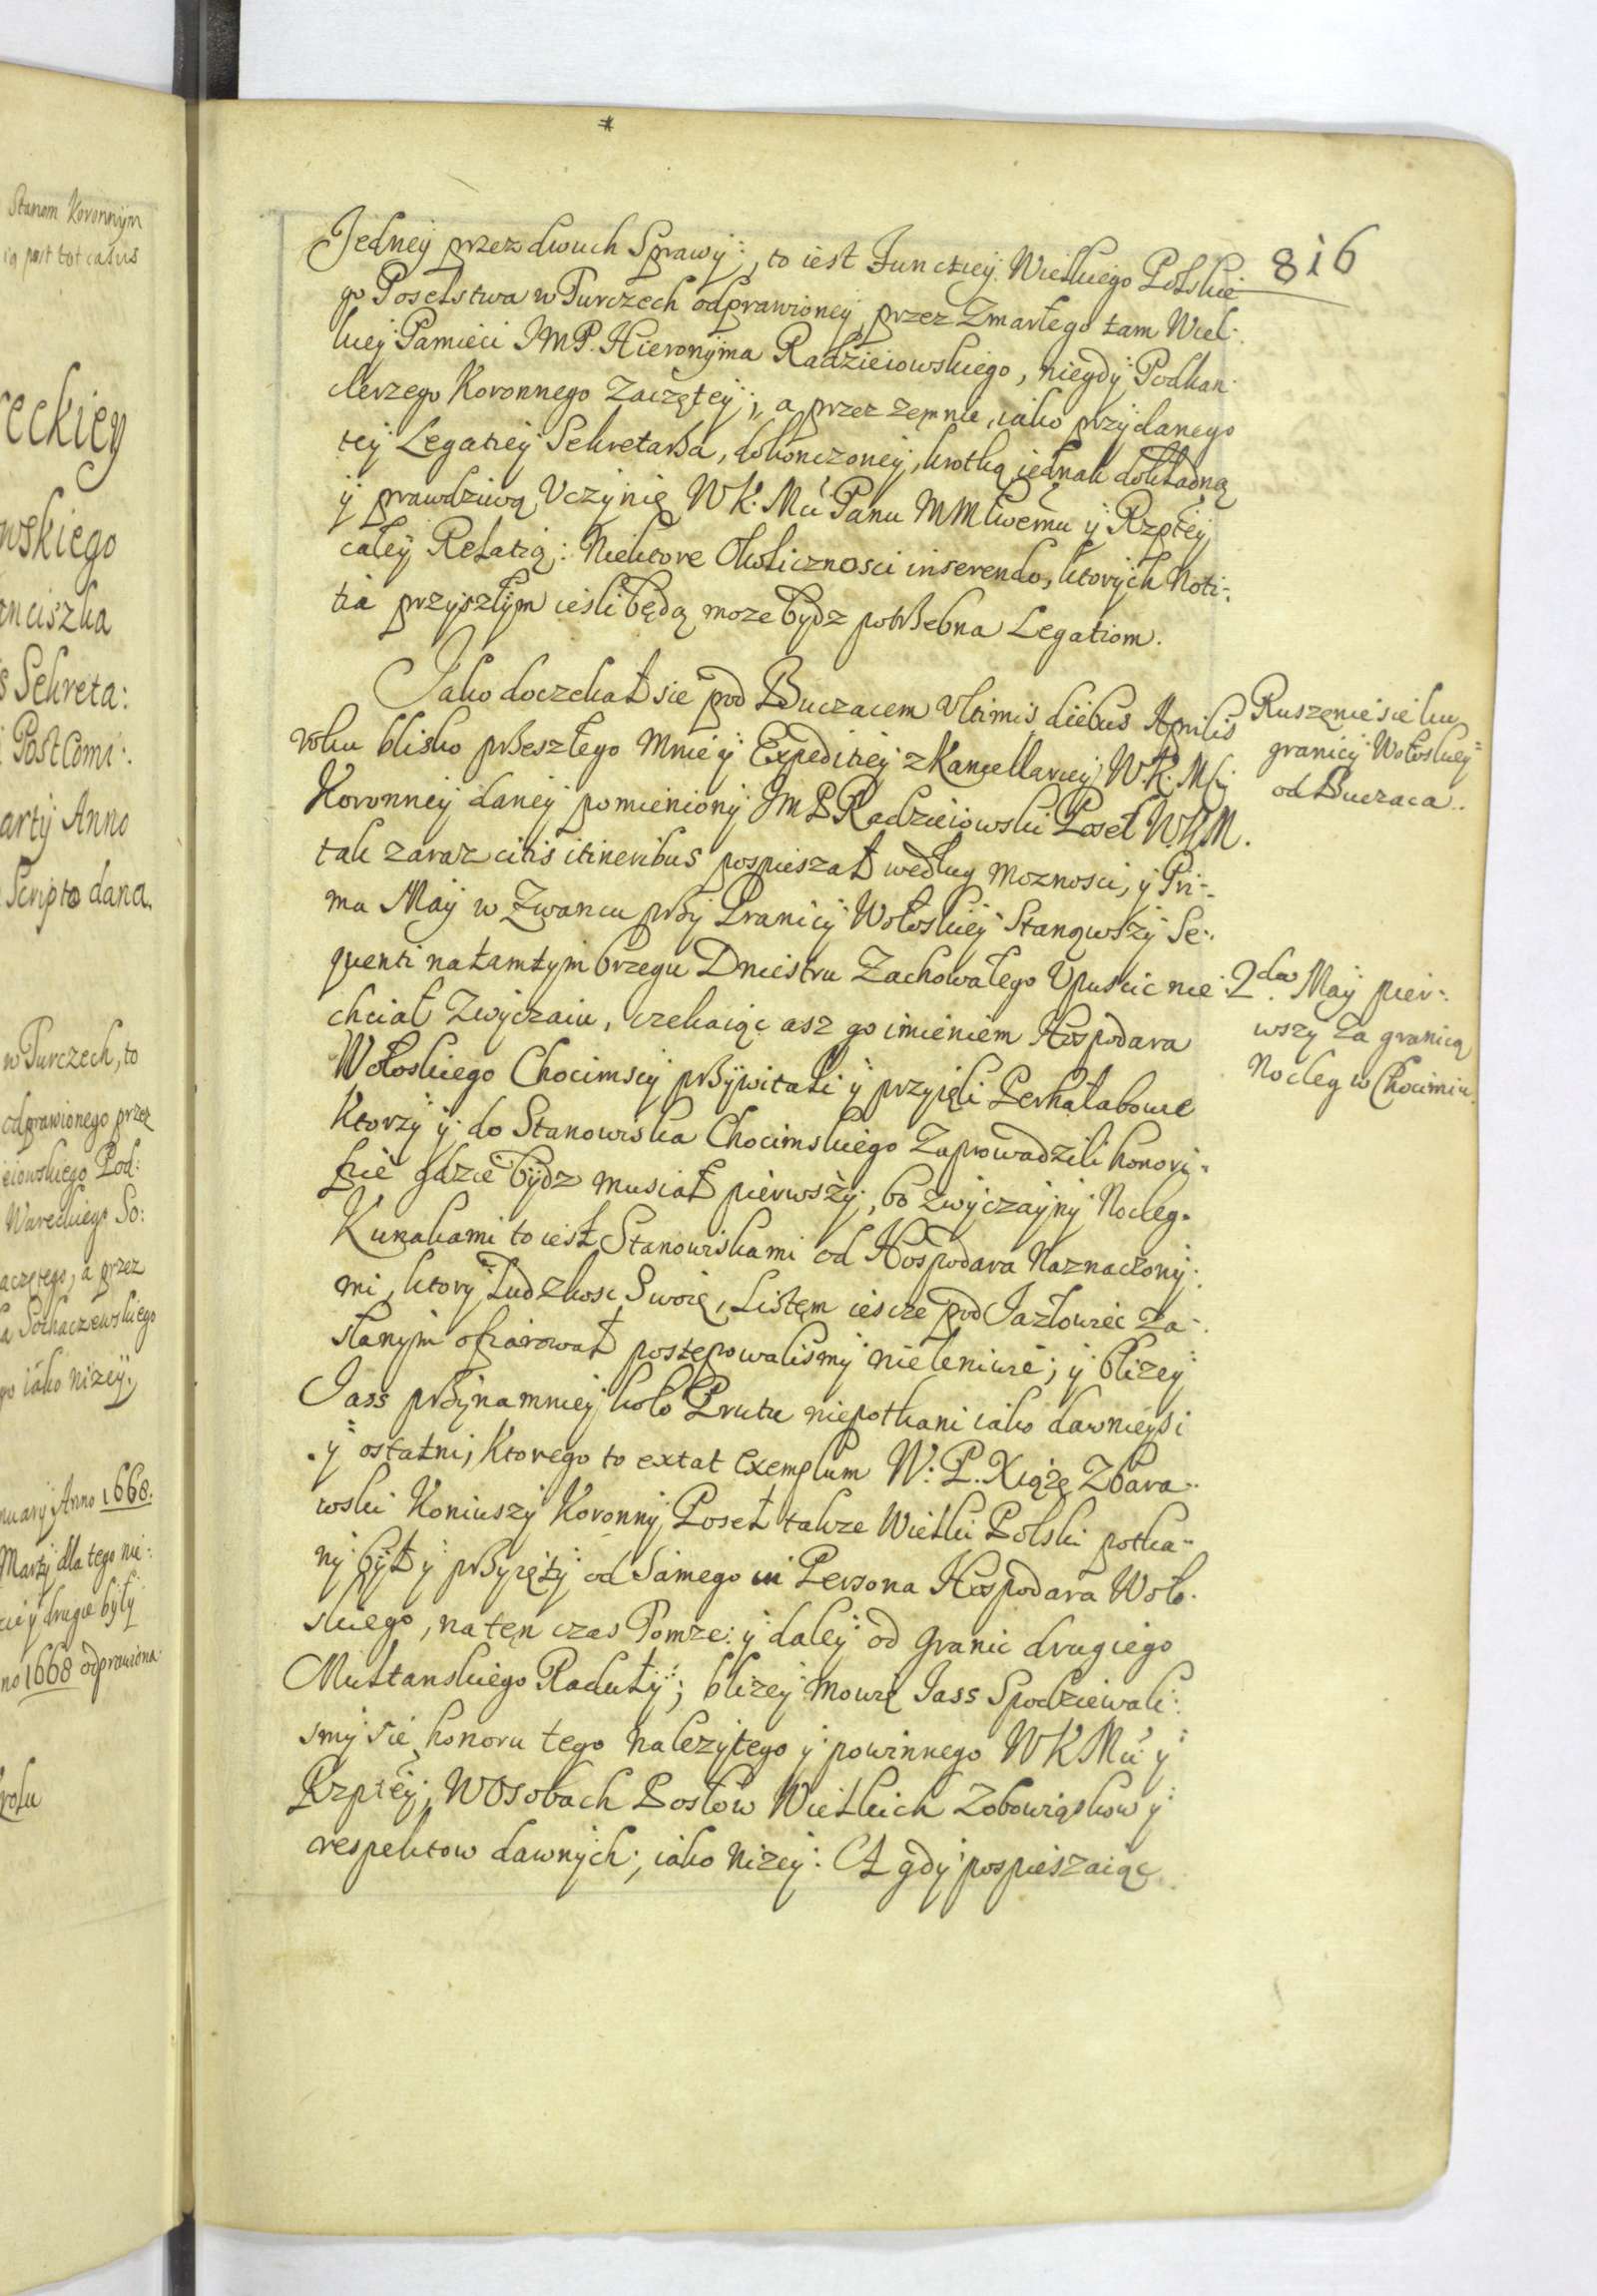 Stanom Koronnym
ia post tot casus
reckiey
wskiego
anciszka
s Sekreta:
i PostComi:
arty Anno
Scripto dana.
w Turczech, to
odprawionego przez
eiowskiego Pod:
Wareckiego So:
aczętego, a przez
a Sochaczewskiego
iako niżey.
nuary Anno 1668.
Marty dla tego nie:
y drugie były
no 1668 odprawiona.
816
Jedney przez dwuch Sprawy, to iest Functiey Wielkiego Polskie
go Poselstwa w Turczech odprawioney, przez Zmarłego tam Wiel:
kiey Pamieci JMP. Hieronyma Radzieiowskiego, niegdy Podkan:
clerzego Koronnego Zaczętey, a przez zemnie, iako przydanego
tey Legatiey Sekretarza, dokonczoney, krotką iednak dokładną
y prawdziwą Vczynię WK. Mci Panu MMłwemu y Rzptey
całey Relatią: Niektore Okolicznosci inserendo, ktorych Noti:
tia przyszłym iesli będą moze bydz potrzebna Legatiom.
Jako doczekał sie pod Buczacem Vltimis diebus Aprilis
roku blisko przeszłego Mnie y Expeditiey z Kancellariey W.K.Mci
Koronney daney pomieniony JMP Radzieiowski Poseł W.K.M.
tak zaraz citis itineribus pospieszał według moznosci, y Pri:
ma May w Zwancu przy Granicy Wołoskiey Stanąwszy Se:
quenti na tamtym brzegu Dniestru Zachowałego Vpuscic nie
chciał Zwyczaiu, czekaiąc asz go imieniem Hospodara
Wołoskiego Chocimscy przywitali y przyięli Perkałabowie
Ktorzy y do Stanowiska Chocimskiego Zaprowadzili honori:
fice gdzie bydz musiał pierwszy, bo zwyczayny Nocleg.
Kunakami to iest Stanowiskami od Hospodara Naznaczony:
mi, ktory Ludzkosc Swoię, Listem ieszcze pod Jazłowiec Za:
słanym ofiarował postępowalismy nieleniwie; y blizey
Jass przynamniey koło Prutu niepotkani iako dawnieysi
y ostatni, Ktorego to extat Exemplum W. P. Xiąże Zbara:
wski Koniuszy Koronny Poseł takze Wielki Polski potka:
ny był y przyięty od Samego in Persona Hospodara Woło:
skiego, na ten czas Tomze: y daley od granic drugiego
Multanskiego Raduły; blizey mowię Jass Spodziewali:
smy sie honoru tego nalezytego y powinnego WKMci y
Rzptey, W Osobach Posłow Wielkich Zobowiązkow y
respektow dawnych; iako nizey: A gdy pospieszaiąc
Ruszenie sie ku
granicy Wołoskiey
od Buczaca.
2da May pier:
wszy Za granicą
Nocleg w Chocimiu.